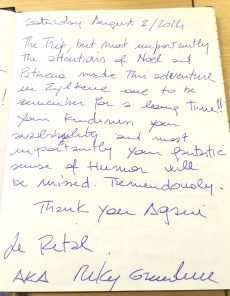 Saturday August 2/2014
The Trip, but most importantly
the attentions of Noel and
made This adventure
in one to be
remember for a long time!!
Your kindness your
availability and most
importantly your fantastic
sense of Humor will
be missed. Tremendously.
Thank you Again
AKA Riky